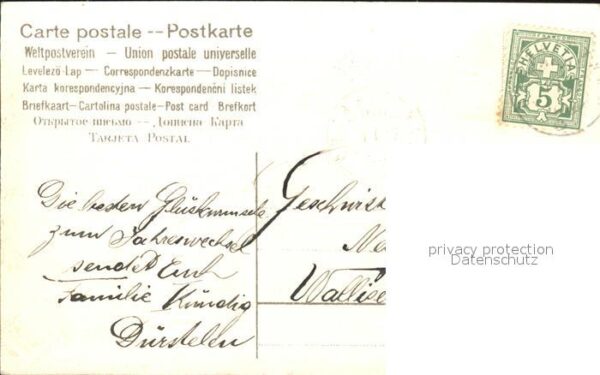 Carte postale -- Postkarte
Weltpostverein — Union postale universelle
Levelező-Lap — Correspondenzkarte — Dopisnice
Karta korespondencyjna — Korespondenční lístek
Briefkaart — Cartolina postale — Post card Brefkort
Открытое письмо -- Дописна Карта
Tarjeta Postal
HELVETIA
5
A
Die besten Glückwünsche
zum Jahreswechsel
sendet Euch
Familie Kündig
Dürstelen
Geschwist
Ne
Wallise
privacy protection
Datenschutz